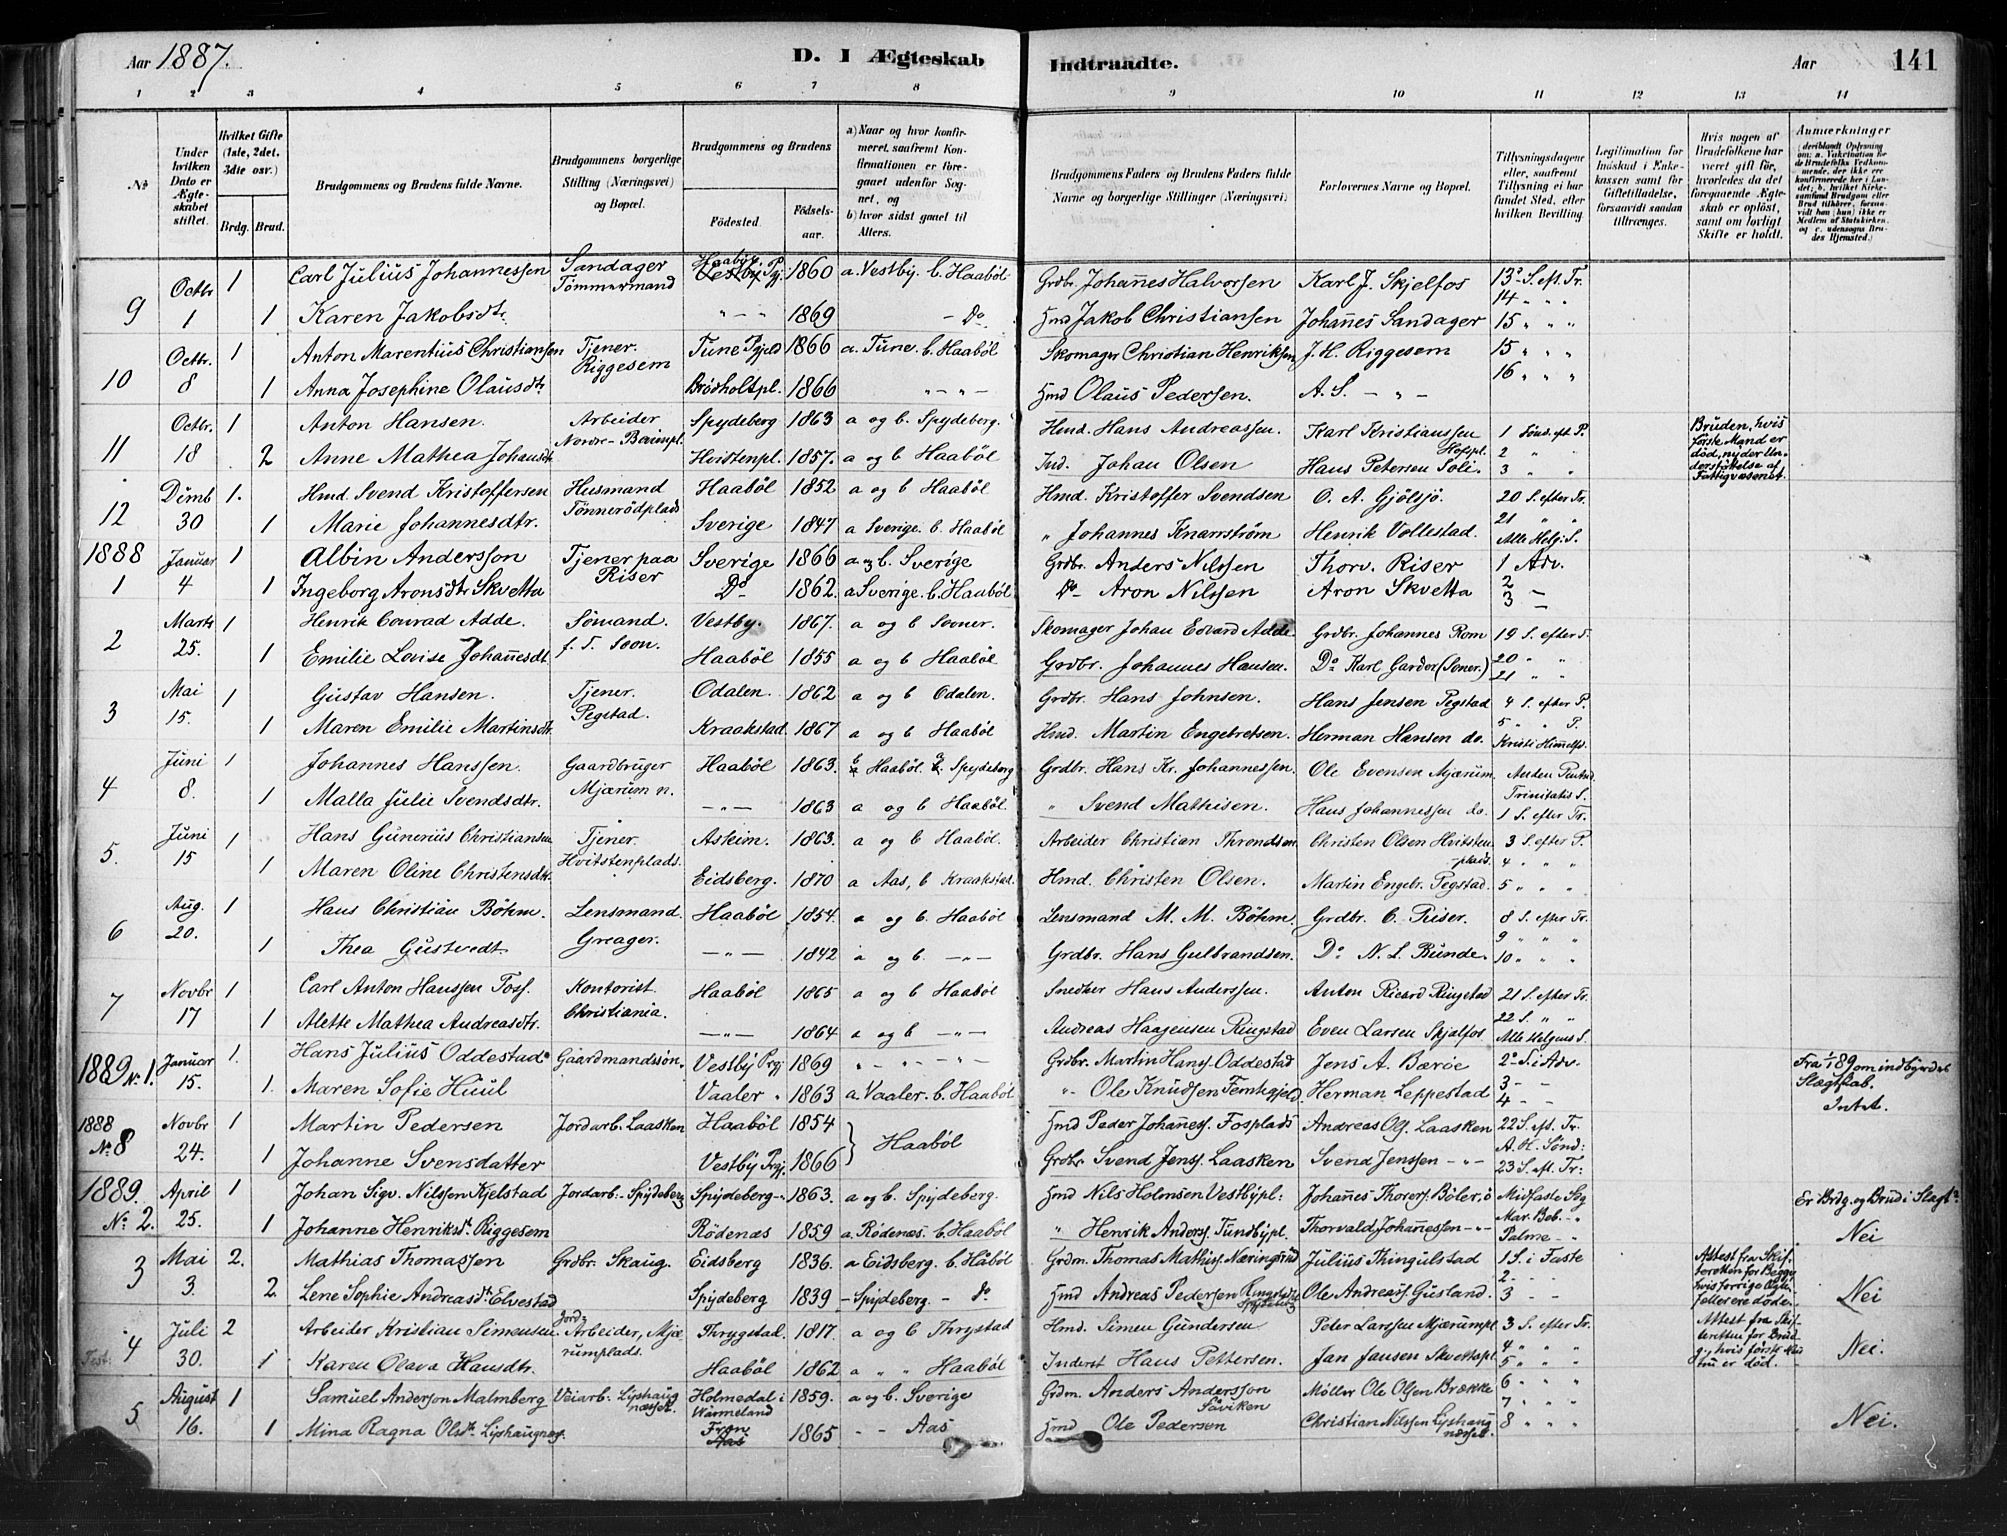 Aar 1887. D. I Ægteskab Indtraadte. Aar 141
1 2 3 4 5 6 7 8 9 10 11 12 13 14
No
Under hvilken Dato er Ægteskabet stiftet.
Hvilket Gifte (1ste, 2det, 3die osv.)
Brdg. Brud.
Brudgommens og Brudens fulde Navne.
Brudgommens borgerlige Stilling (Næringsvei) og Bopæl.
Brudgommens og Brudens
Fødested. Fødselsaar.
a) Naar og hvor konfirmeret, saafremt Konfirmationen er foregaaet udenfor Sognet, og
b) hvor sidst gaaet til Alters.
Brudgommens Faders og Brudens Faders fulde Navne og borgerlige Stillinger (Næringsvei)
Forlovernes Navne og Bopæl.
Tillysningsdagene eller, saafremt Tillysning ei har fundet Sted, efter hvilken Bevilling.
Legitimation for Indskud i Enkekassen samt for Giftetilladelse, forsaavidt saadan tiltrænges.
Hvis nogen af Brudefolkene har været gift før, hvorledes da det foregaaende Ægteskab er opløst, samt om lovligt Skifte er holdt.
Anmærkninger
9 Octbr 1 1 Carl Julius Johannessen Sandager Tömmermand Haabøl Vestby Pgj. 1860 a. Vestby. b. Haaböl Grdbr. Johannes Halvorsen Karl J. Skjelfos 13de S. eft. Tr.
14 " "
1 Karen Jakobsdtr. " - " 1869 - Do Hmd Jakob Christiansen Johannes Sandager 15 " "
10 Octbr. 8 1 Anton Marentius Christiansen Tjener. Riggesem Tune Pgjeld 1866 a. Tune. b. Haaböl Skomager Christian Henriksen J. H. Riggesem 15 " "
1 Anna Josephine Olausdtr. Brödholtpl. 1866 " - " - Hmd Olaus Pedersen. A. S. - " - 16 " "
11 Octbr. 18 1 Anton Hansen. Arbeider Nordre- Spydeberg 1863 a og b. Spydeberg. Hmd. Hans Andreassen. Karl Kristianssen Hofspl. 1 Sönd. eft P.
2 Anne Mathea Johansdtr Hvistenpl. 1857. a og b Haaböl Ind. Johan Olsen Hans Petersen Soli. 2 " " 3 " "
Bruden, hvis förste Mand er död, nyder Understöttelse af Fattigvæsenet.
12 Dcmb 30 1. Hmd. Svend Kristoffersen Husmand Tönnerödplads Haaböl 1852 a og b Haaböl Hmd. Kristoffer Svendsen O. A. Gjölsjö. 20 S. efter Tr.
1 Marie Johannesdtr. Sverige 1847 a Sverige. b. Haaböl " Johannes Knarrström Henrik Vollestad. 21 " " Alle Helg. S.
1888
1 Januar 4 1 Albin Andersson Tjener paa Riser Sverige 1866 a og b. Sverige Grdbr. Anders Nilssen Thorv. Riser 1 Adv.
1 Ingeborg Aronsdtr Skvetta Do 1862. a Sverige. b. Haaböl Do Aron Nilssen Aron Skvetta 2 - 3 -
2 Marts 25. 1 Henrik Conrad Adde. Sömand. f. T. Soon. Vestby. 1867. a og b Sooner. Skomager Johan Edvard Adde Grdbr. Johannes Rom 19 S. efter T.
1 Emilie Lovise Johannesdt. Haaböl 1855 a og b Haaböl Grdbr. Johannes Hansen. Do Karl Garder (Soner.) 20 " " 21 " "
3 Mai 15. 1 Gustav Hansen. Tjener. Pegstad. Odalen. 1862 a og b Odalen. Grdbr. Hans Johnsen. Hans Jensen Pegstad 4 S. efter P.
1 Maren Emilie Martinsdtr. Kraakstad. 1867 a og b Haaböl Hmd. Martin Engebretsen. Herman Hansen do. 5 " " P. Kristi Himmelfs.
4 Juni 8. 1 Johannes Hanssen. Gaardbruger Mjærum n. Haaböl 1863. b Haaböl. a. Spydeberg Grdbr. Hans Kr. Johannessen. Ole Evensen Mjærum. Anden Pintsd.
1 Malla Julie Svendsdtr. - " - 1863 a og b Haaböl. " Svend Mathisen. Hans Johannessen do. Trinitatis S. 1 S. efter Tr.
5. Juni 15 1 Hans Gunerius Christiansen Tjener. Hvitstenplads. Askim. 1863. a og b Haaböl. Arbeider Christian Throndsen Christen Olsen Hvitstenplads. 3 S. efter P.
1 Maren Oline Christensdtr. Eidsberg. 1870 a Aas, b Kraakstad. Hmd. Christen Olsen. Martin Engebr. Pegstad. 4 " " 5 " "
6 Aug. 20. 1 Hans Christian Böhm. Lensmand. Greager. Haaböl 1854. a og b. Haaböl Lensmand M. M. Böhm. Grdbr. C. Riser. 8 S. efter Tr.
1 Thea Gustvedt - " - 1842 a og b. - " - Grdbr. Hans Gulbrandsen. Do N. L. Bunde. 9 " " 10 " "
7 Novbr 17 1 Carl Anton Hanssen Foss. Kontorist. Christiania. Haaböl 1865 a og b Haaböl Snedker Hans Anderssen. Anton Ricard Ringstad 21 S. efter Tr.
1 Alette Mathea Andreasdtr. - " - 1864 a og b - " - Andreas Haagensen Ringstad Even Larsen Skjælfos 22 S. " " Alle Helgens S.
1889 No 1. Januar 15. 1. Hans Julius Oddestad. Gaardmandssön. Vestby Prgj 1869 " - " - " - Grdbr. Martin Hans. Oddestad Jens A. Bæröe 2den S. i Adv.
1. Maren Sofie Huul Vaaler " 1863 a. Vaaler. b. Haaböl " Ole Knudsen Fernkjeld Herman Leppestad 3 - - 4 - -
Fra 1/1 89 om indbyrdes Slægtskab. Intet.
1888 No 8 Novbr 24. 1 Martin Pedersen Jordarb. Laasken Haaböl 1854 Haaböl Hmd Peder Johannes. Fosplads Andreas Ols. Laasken 22 S. eft. Tr.
1 Johanne Svensdatter Vestby Prgj. 1866 Grdbr. Svend Jenss. Laasken Svend Jenssen - " - A. H. Sönd: 23 S. eft. Tr:
1889. No 2. April 25. 1 Johan Sigv. Nilssen Kjelstad Jordarb. - Spydeberg Spydeberg- 1863. a og b. Spydeberg. Hmd Nils Holmsen Vestbypl: Johannes Thorers. Böler, ö Midfaste Sög
1 Johanne Henriksdtr. Riggesem Rödenæs 1859 a. Rödenæs. b. Haaböl " Henrik Anders. Tundbypl. Thorvald Johannessen - " - Mar. Beb. - " Palme - "
Er Brdg. og Brud i Slægt? Nei
3 Mai 3. 2. Mathias Thomassen Grdbr. Skaug. Eidsberg 1836. a Eidsberg. b. Håböl Grdm. Thomas Mathis. Næringsrud Julius Thingulstad 1 S. i Faste
2. Lene Sophie Andreasdtr. Elvestad Spydeberg 1839 - Spydeberg. - Do. Hmd Andreas Pedersen Ole Andreass. Gusland. 2 - - 3 - -
Attest fra Skifteretten for Begge hvis forrige Ægtefæller ere döde. Nei
4 Juli 30. 2 Arbeider Kristian Simensen Jord-Arbeider, Mjærumplads. Thrygstad. 1817. a og b Thrystad Hmd. Simen Gundersen Peter Larssen Mjærumpl 3 S. efter Tr.
1 Karen Olava Hansdtr. Haaböl 1862 a " " Haaböl Inderst Hans Pettersen. Jan Jansen Skvettapl 4 " " 5 " "
Attest fra Skifteretten for Brudg., hvis förste er död. Nei.
5 August 16. 1 Samuel Andersson Malmberg Veiarb. Lyshaugnæsset Holmedal i Wärmeland 1859. a og b. Sverige Grdm. Anders Andersson Såviken Möller Ole Olsen Brække 6 " "
7 " "
1 Mina Ragna Olsdtr. Lyshaugnes. Fron Aas 1865 - - Aas Hmd Ole Pedersen Christian Nilssen Lyshaugnæsset. 8 " " Nei.